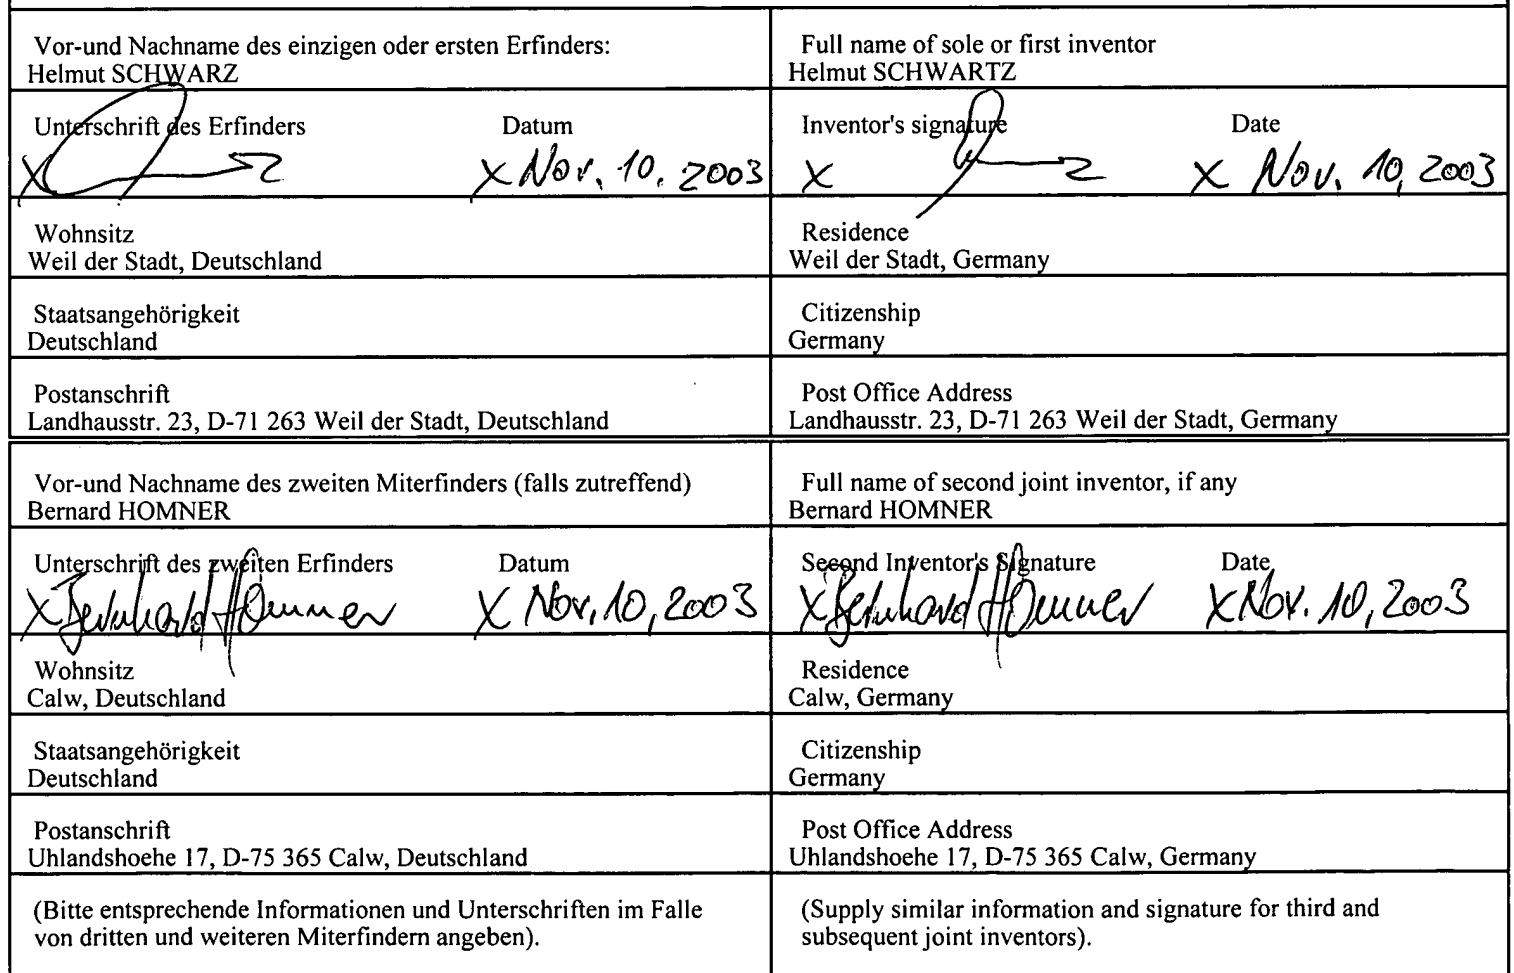 Vor-und Nachname des einzigen oder ersten Erfinders:
Helmut SCHWARZ
Full name of sole or first inventor
Helmut SCHWARTZ
Unterschrift des Erfinders Datum
X X Nov. 10, 2003
Inventor's signature Date
X X Nov. 10, 2003
Wohnsitz
Weil der Stadt, Deutschland
Residence
Weil der Stadt, Germany
Staatsangehörigkeit
Deutschland
Citizenship
Germany
Postanschrift
Landhausstr. 23, D-71 263 Weil der Stadt, Deutschland
Post Office Address
Landhausstr. 23, D-71 263 Weil der Stadt, Germany
Vor-und Nachname des zweiten Miterfinders (falls zutreffend)
Bernard HOMNER
Full name of second joint inventor, if any
Bernard HOMNER
Unterschrift des zweiten Erfinders Datum
X Bernhard Homner X Nov. 10, 2003
Second Inventor's Signature Date
X Bernhard Homner X Nov. 10, 2003
Wohnsitz
Calw, Deutschland
Residence
Calw, Germany
Staatsangehörigkeit
Deutschland
Citizenship
Germany
Postanschrift
Uhlandshoehe 17, D-75 365 Calw, Deutschland
Post Office Address
Uhlandshoehe 17, D-75 365 Calw, Germany
(Bitte entsprechende Informationen und Unterschriften im Falle
von dritten und weiteren Miterfindern angeben).
(Supply similar information and signature for third and
subsequent joint inventors).